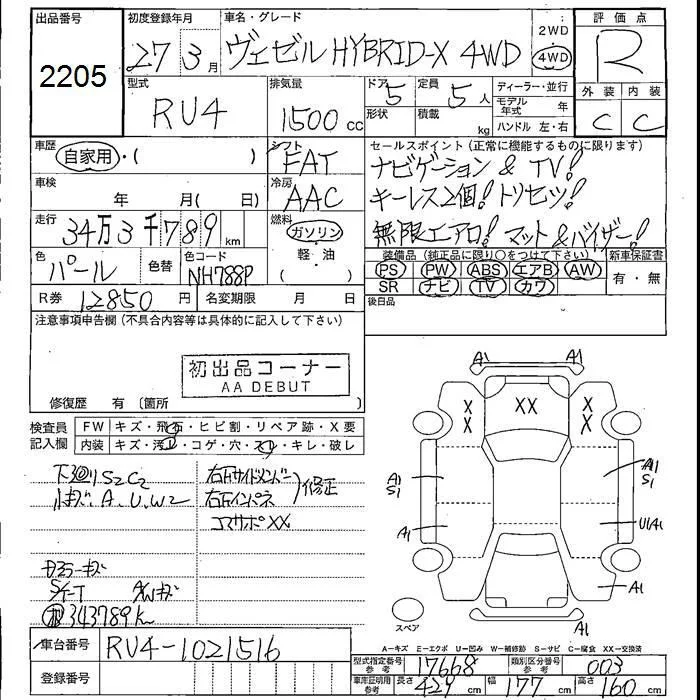 出品番号
2205
初度登録年月
27 3月
車名・グレード
ヴェゼル HYBRID-X 4WD
2WD
4WD
評価点
R
外装 内装
C C
型式
RU4
排気量
1500 cc
ドア 5
定員 5人
形状
積載 kg
ディーラー・並行
モデル年式 年
ハンドル 左・右
車歴
自家用・( )
シフト
FAT
セールスポイント(正常に機能するものに限ります)
ナビゲーション & TV!
キーレス2個! トリセツ!
無限エアロ! マット&バイザー!
車検
年 月( 日)
冷房
AAC
走行
34万3千789km
燃料
ガソリン
軽・油
( )
色
パール
色替
色コード
NH788P
装備品(純正品に限り○をつけて下さい)
PS PW ABS エアB AW
SR ナビ TV カワ
新車保証書
有・無
R券 12850円
名変期限 月 日
後日品
注意事項申告欄(不具合内容等は具体的に記入して下さい)
初出品コーナー
AA DEBUT
修復歴 有〔箇所 〕
検査員
記入欄
FW キズ・飛石・ヒビ割・リペア跡・X要
内装 キズ・汚レ・コゲ・穴・スレ・キレ・破レ
下廻りS2C2
小キズ.A.U.W2
右Fサイドメンバー
右Fインパネ
修正
コアサポXX
ガラスキズ
シートT
A/Wキズ
343789K
A1 A1
X X
XX
X X
A1
S1
A1
S1
A1
U1A1
A1
A1 A1
スペア
A-キズ E-エクボ U-凹み W-補修跡 S-サビ C-腐食 XX-交換済
車台番号 RU4-1021516
登録番号
型式指定番号
参考
17668
類別区分番号
参考
003
車庫証明用
参考
長さ 429cm
幅 177cm
高さ 160cm